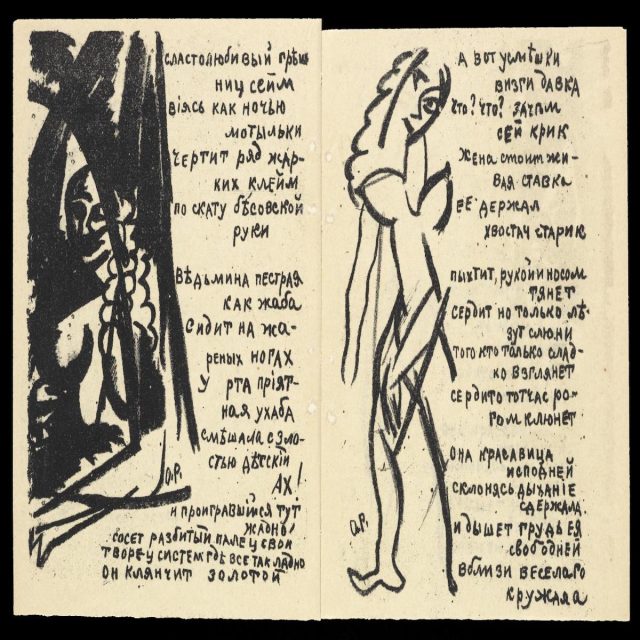 сластолюбивый грѣш
ниц сейм
віясь как ночью
мотыльки
чертит ряд жар-
ких клейм
по скату бѣсовской
руки
Вѣдьмина пестрая
как жаба
сидит на жа-
реных ногах
у рта пріят-
ная ухаба
смѣшала с зло-
стью дѣтскій
Ах!
и проигравшийся тут
жадно
сосет разбитый палец свой
творец систем гдѣ все так ладно
он клянчит золотой
О.Р.
А вот усмѣшки
визги давка
Что? что? зачѣм
сей крик
жена стоит жи-
вая ставка
ее держал
хвостач старик
пыхтит, рукой и носом
тянет
сердит но только лѣ-
зут слюни
того кто только слад-
ко взглянет
сердито тотчас ро-
гом клюнет
она красавица
исподней
склонясь дыханіе
сдержала
и дышет грудь ея
свободней
вблизи веселаго
кружала
О.Р.